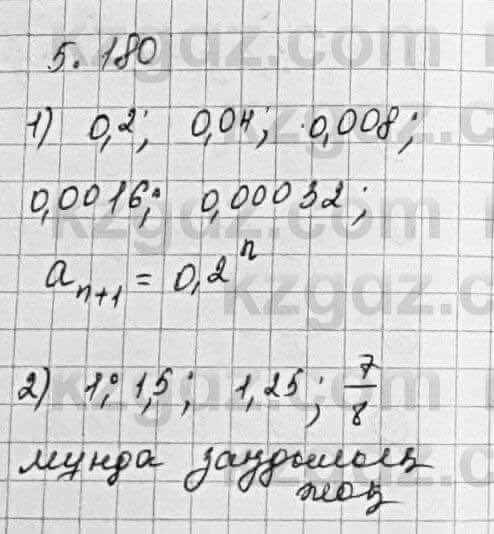 5.180
1) 0,2; 0,04; 0,008;
0,0016; 0,00032;
a_{n+1} = 0,2^n
2) 1; 1,5; 1,25; 7/8
мұнда заңдылық
жоқ
kzgdz.com